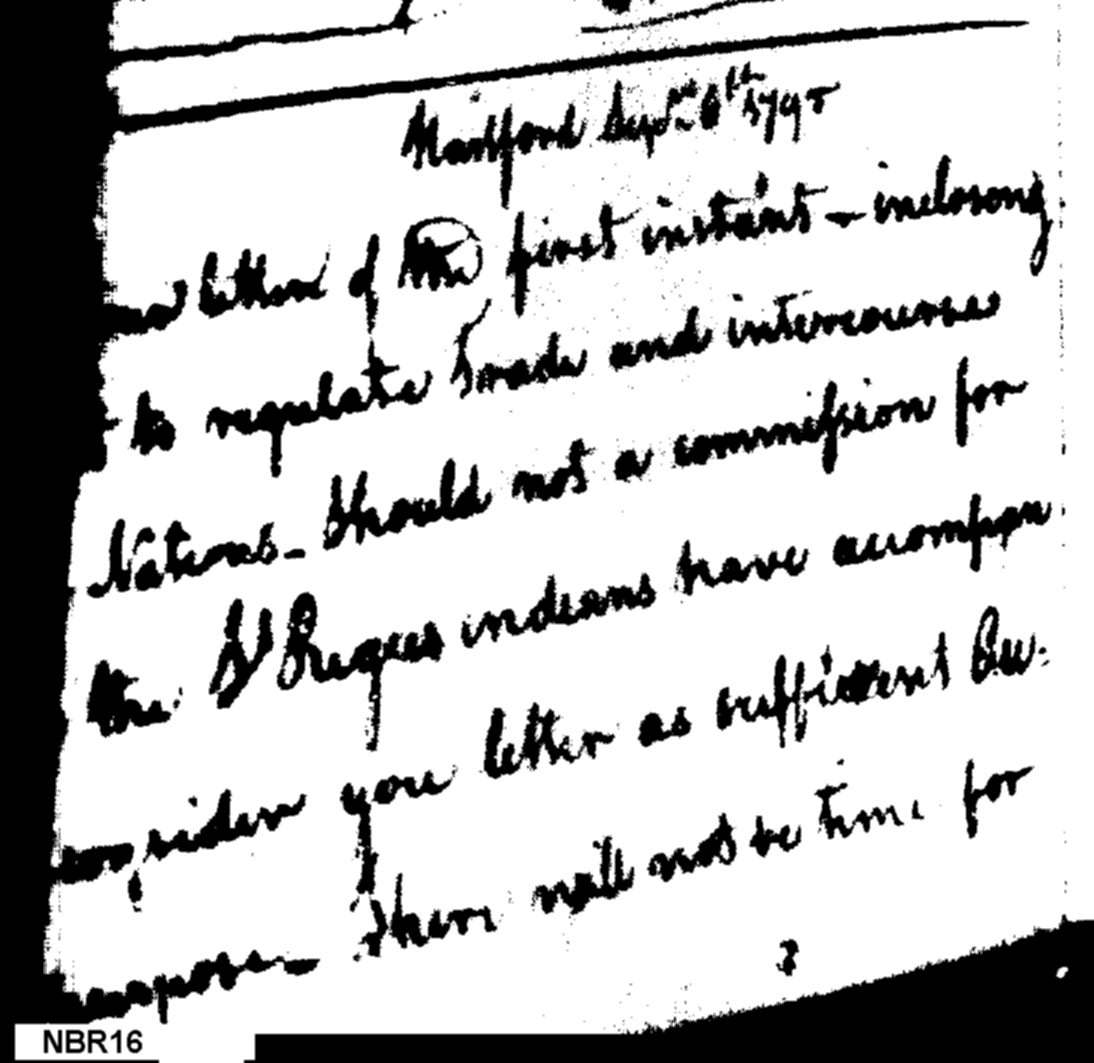 Hartford Sept 6th 1795
letter of the first instant - inclosong
to regulate Trade and intercourse
Nations - Should not a commission for
the St Regues indeans have accompan
consider your letter as suffieient Au
purpose - There will not be time for
NBR16